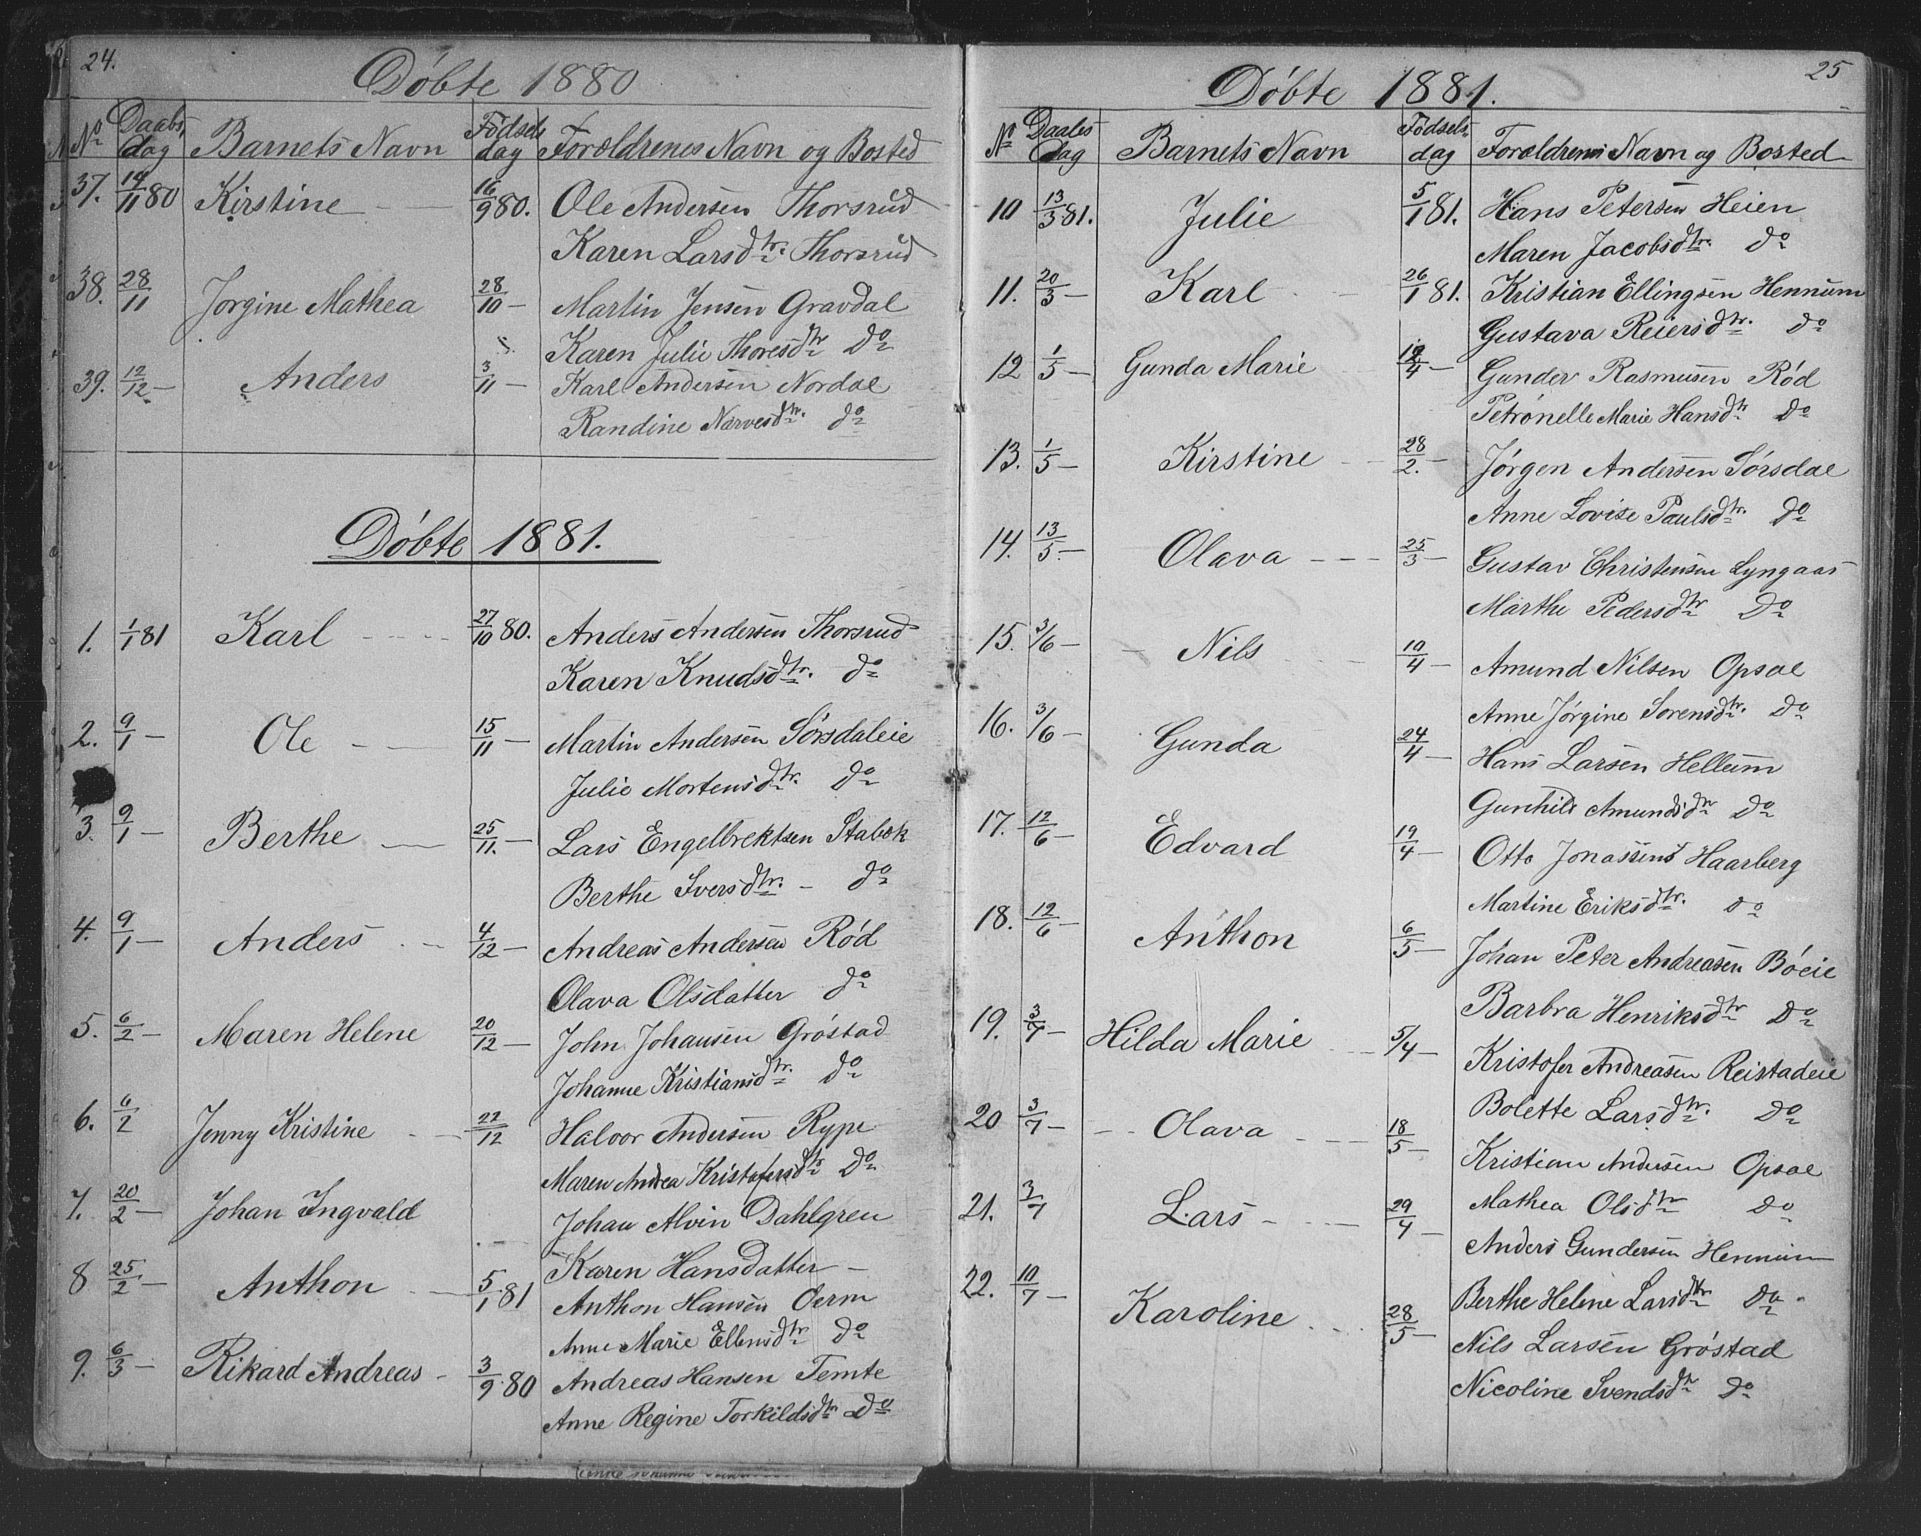 24.
Döbte 1880
No Daabsdag Barnets Navn Födselsdag Forældrenes Navn og Bosted
37. 14/11 80 Kirstine 16/9 80. Ole Andersen Thorsrud
Karen Larsdtr. Thorsrud
38. 28/11 Jørgine Mathea 28/10 — Martin Jensen Gravdal
Karen Julie Thoresdtr Do
39. 12/12 — Anders 3/11 — Karl Andersen Nordal
Randine Narvesdtr. do
Döbte 1881.
1. 1/1 81 Karl 27/10 80. Anders Andersen Thorsrud
Karen Knudsdtr. do
2. 9/1 — Ole 15/11 — Martin Andersen Sørsdaleie
Julie Mortensdtr. Do
3. 9/1 — Berthe 25/11. — Lars Engelbrektsen Stabæk
Berthe Iversdtr. — do
4. 9/1 — Anders 4/12 — Andreas Andersen Rød
Olava Olsdatter do
5. 6/2 — Maren Helene 20/12 — John Johansen Grøstad
Johanne Kristiansdtr. do
6. 6/2 Jenny Kristine 22/12 Halvor Andersen Rype
Maren Andrea Kristofersdtr Do
7. 20/2 — Johan Ingvald Johan Alvin Dahlgren
Karen Hansdatter —
8 25/2 — Anthon 5/1 81 Anthon Hansen Oerm
Anne Marie Ellensdtr do
9. 6/3 — Rikard Andreas 3/9 80 Andreas Hansen Temte
Anne Regine Torkildsdtr Do
25
Döbte 1881.
No Daabsdag Barnets Navn Fødselsdag Forældrenes Navn og Bosted
10 13/3 81. Julie 5/1 81. Hans Petersen Heien
Maren Jacobsdtr. do
11. 20/3 — Karl 26/1 81. Kristian Ellingsen Hennum
Gustava Reiersdtr. do
12 1/5 — Gunda Marie 12/4 — Gunder Rasmusen Rød
Petronelle Marie Hansdtr do
13. 1/5 — Kirstine 28/2. — Jørgen Andersen Sørsdal
Anne Lovise Paulsdtr. do
14. 13/5. — Olava 25/3 — Gustav Christensen Lyngaas
Marthe Pedersdtr Do
15. 3/6 — Nils 10/4 — Amund Nilsen Opsal
Anne Jørgine Sorensdtr. do
16. 3/6 — Gunda 24/4 — Hans Larsen Hellum
Gunhild Amundsdtr do
17. 12/6 — Edvard 19/4 — Otto Jonassens Haarberg
Martine Eriksdtr. do
18. 12/6 — Anthon 6/5 — Johan Peter Andreasen Böeie
Barbra Henriksdtr Do
19. 3/7 — Hilda Marie 5/4 — Kristofer Andreasen Reistadeie
Bolette Larsdtr. Do
20 3/7 — Olava 18/5 — Kristian Andersen Opsal
Mathea Olsdtr do
21. 3/7 Lars 29/4 — Anders Gundersen Hennum
Berthe Helene Larsdtr do
22. 10/7 — Karoline 28/5 — Nils Larsen Grøstad
Nicoline Svendsdtr do